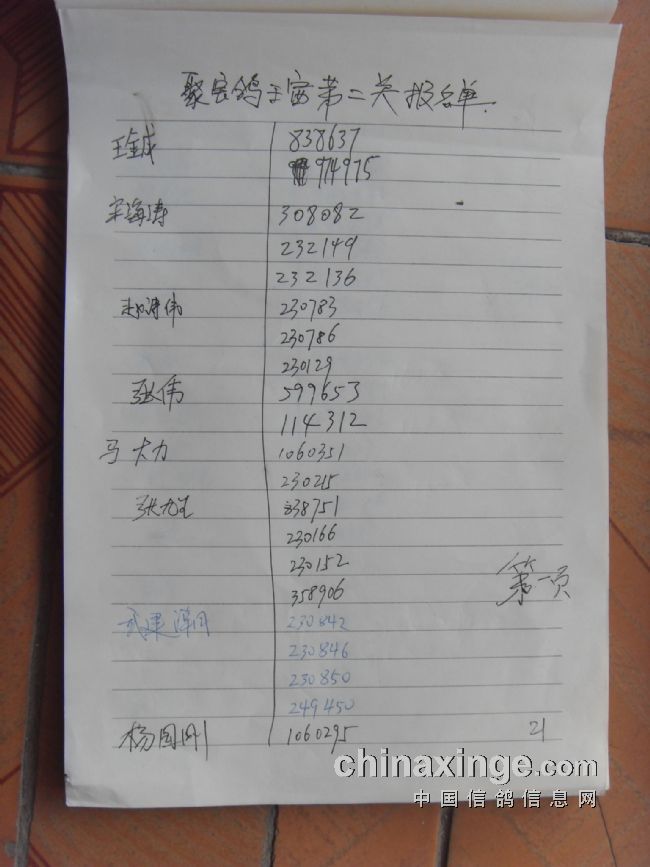 聚宏鸽王宫第二关报名单
王金成 838637
974975
宋海涛 308082
232149
232136
涛伟 230783
230786
230129
张伟 599653
114312
马大力 1060351
230215
张 838751
230166
230152
358906
第一页
武建 230842
230846
230850
249450
杨国刚 1060295
21
chinaxinge.com
中国信鸽信息网